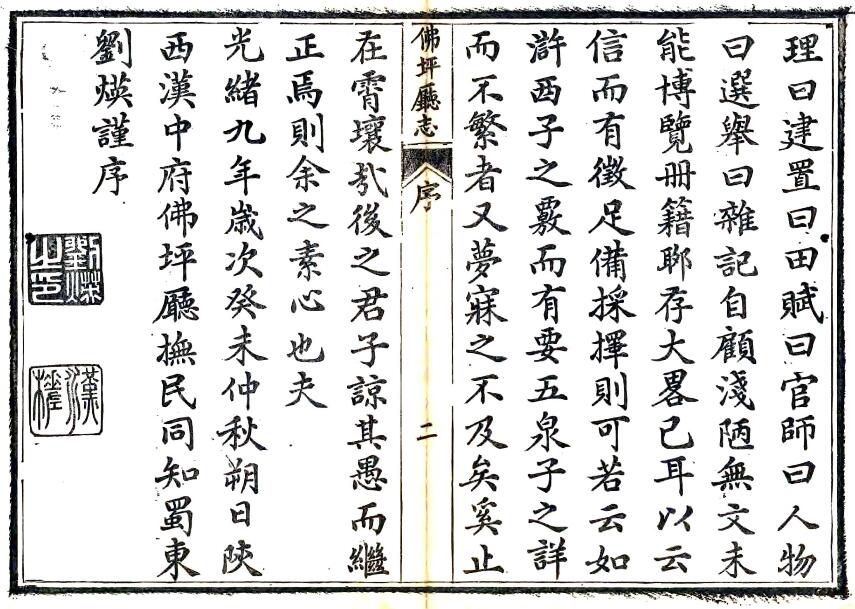 理曰建置曰田賦曰官師曰人物
曰選舉曰雜記自顧淺陋無文未
能博覽冊籍聊存大畧已耳以云
信而有徵足備採擇則可若云如
滸西子之覈而有要五泉子之詳
而不繁者又夢寐之不及矣奚止
佛坪廳志
序
二
在霄壤㢤後之君子諒其愚而繼
正焉則余之素心也夫
光緒九年歲次癸未仲秋朔日陝
西漢中府佛坪廳撫民同知蜀東
劉煐謹序
劉煐之印